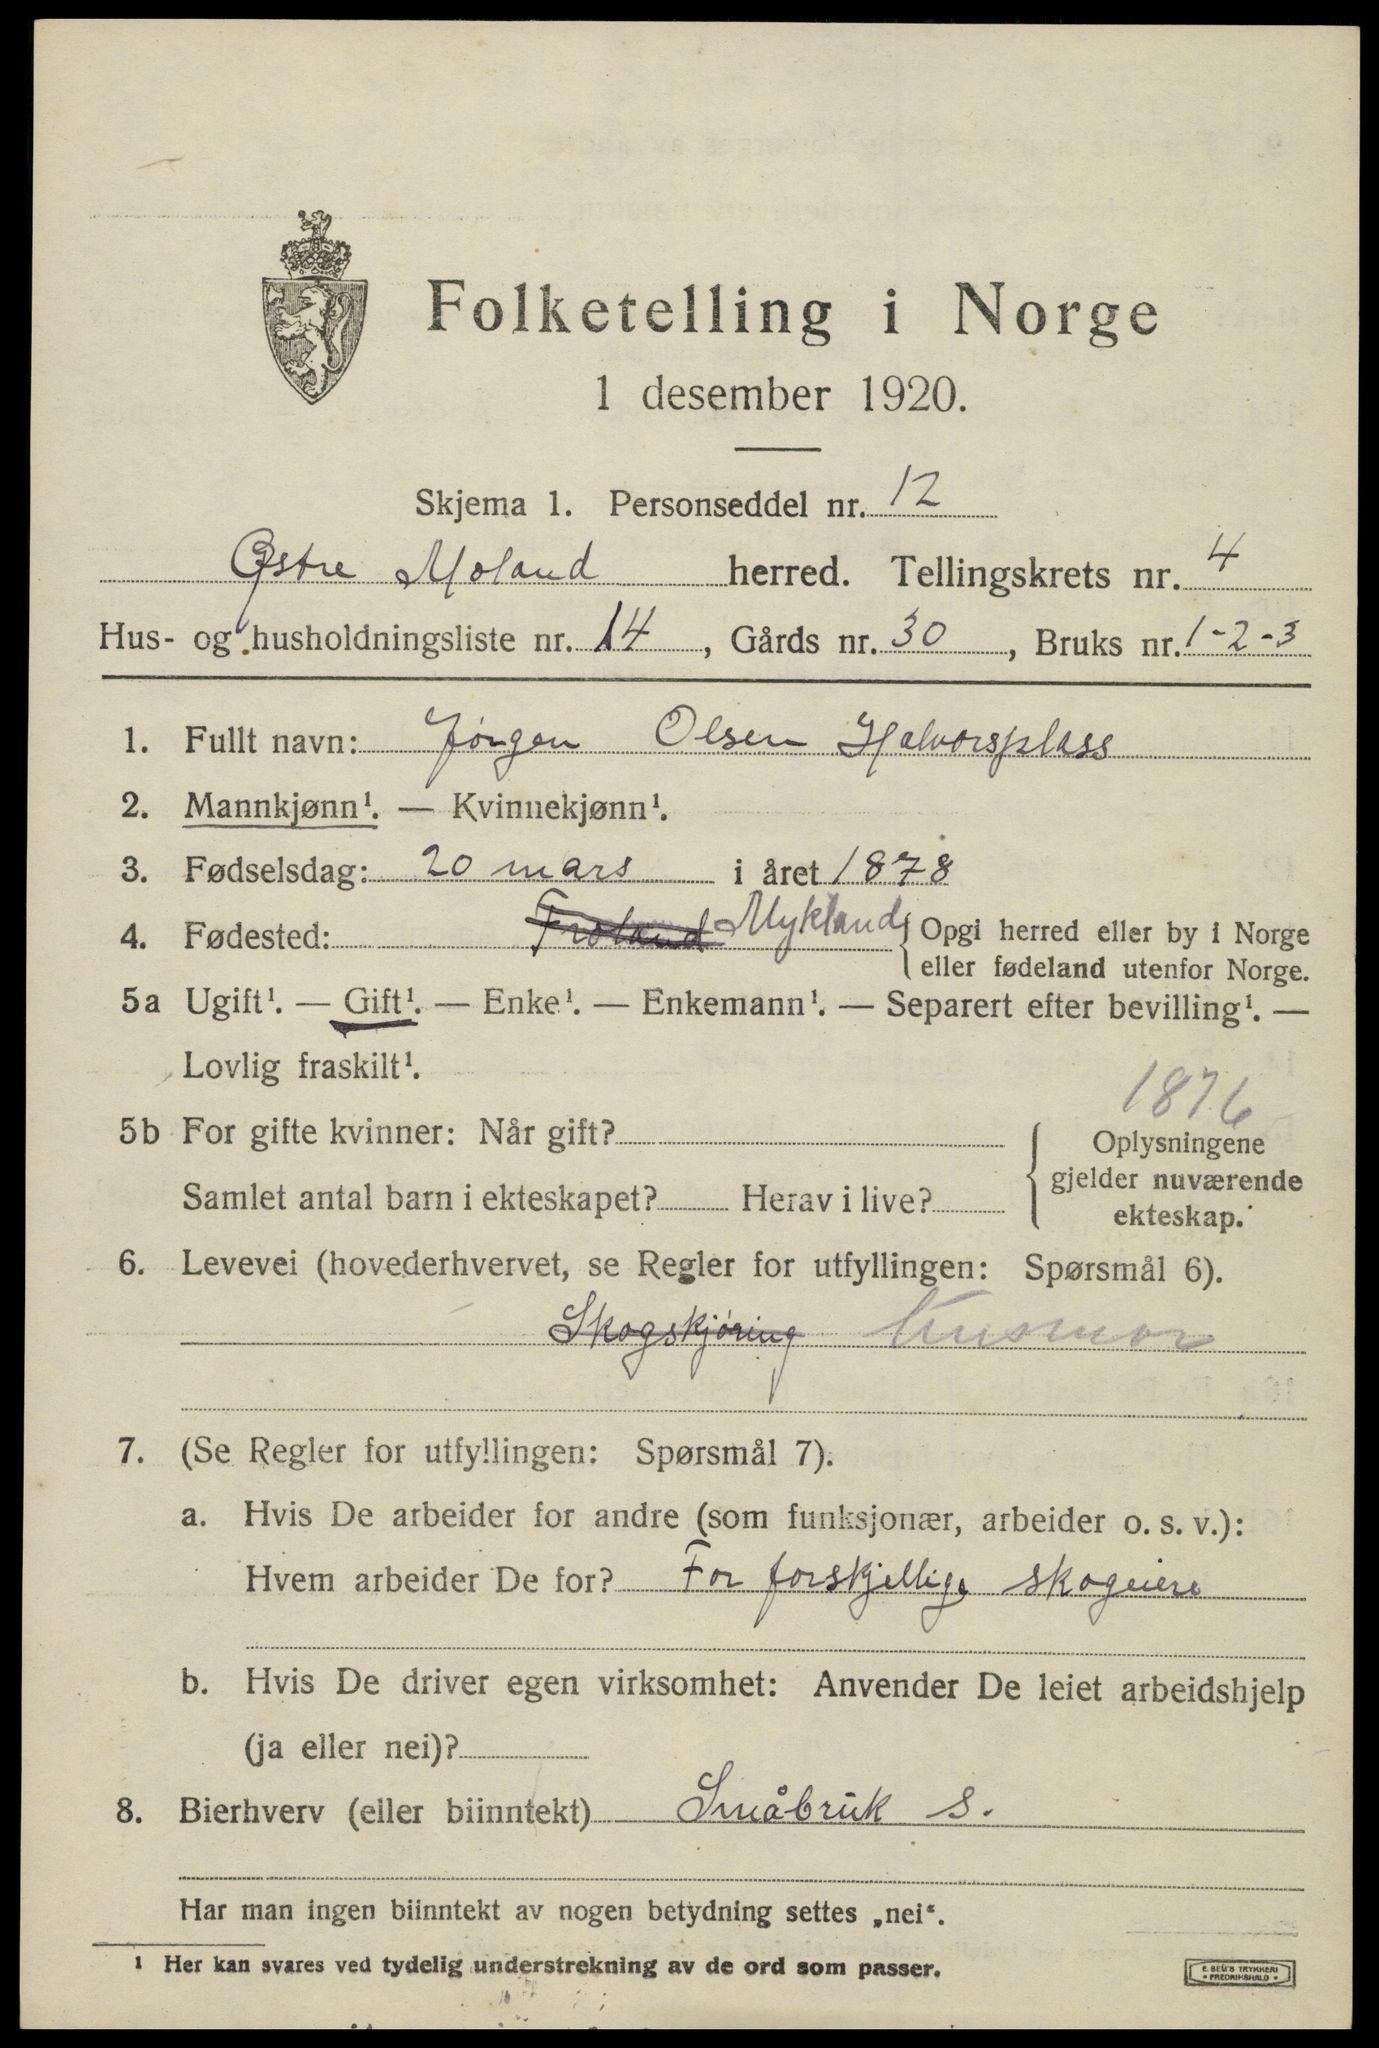 Folketelling i Norge
1 desember 1920.
Skjema 1. Personseddel nr. 12
Østre Moland herred. Tellingskrets nr. 4
Hus- og husholdningsliste nr. 14, Gårds nr. 30, Bruks nr. 1-2-3
1. Fullt navn: Jørgen Olsen Halvorsplass
2. Mannkjønn¹. — Kvinnekjønn¹.
3. Fødselsdag: 20 mars i året 1878
4. Fødested: Froland Mykland { Opgi herred eller by i Norge
eller fødeland utenfor Norge.
5a Ugift¹. — Gift¹. — Enke¹. — Enkemann¹. — Separert efter bevilling¹. —
Lovlig fraskilt¹.
1876
5b For gifte kvinner: Når gift?
Samlet antal barn i ekteskapet? Herav i live?
Oplysningene
gjelder nuværende
ekteskap.
6. Levevei (hovederhvervet, se Regler for utfyllingen: Spørsmål 6).
Skogskjøring
7. (Se Regler for utfyllingen: Spørsmål 7).
a. Hvis De arbeider for andre (som funksjonær, arbeider o. s. v.):
Hvem arbeider De for? For forskjellige skogeiere
b. Hvis De driver egen virksomhet: Anvender De leiet arbeidshjelp
(ja eller nei)?
8. Bierhverv (eller biinntekt) Småbruk s.
Har man ingen biinntekt av nogen betydning settes „nei“.
¹ Her kan svares ved tydelig understrekning av de ord som passer.
E. SEM'S TRYKKERI
• FREDRIKSHALD •